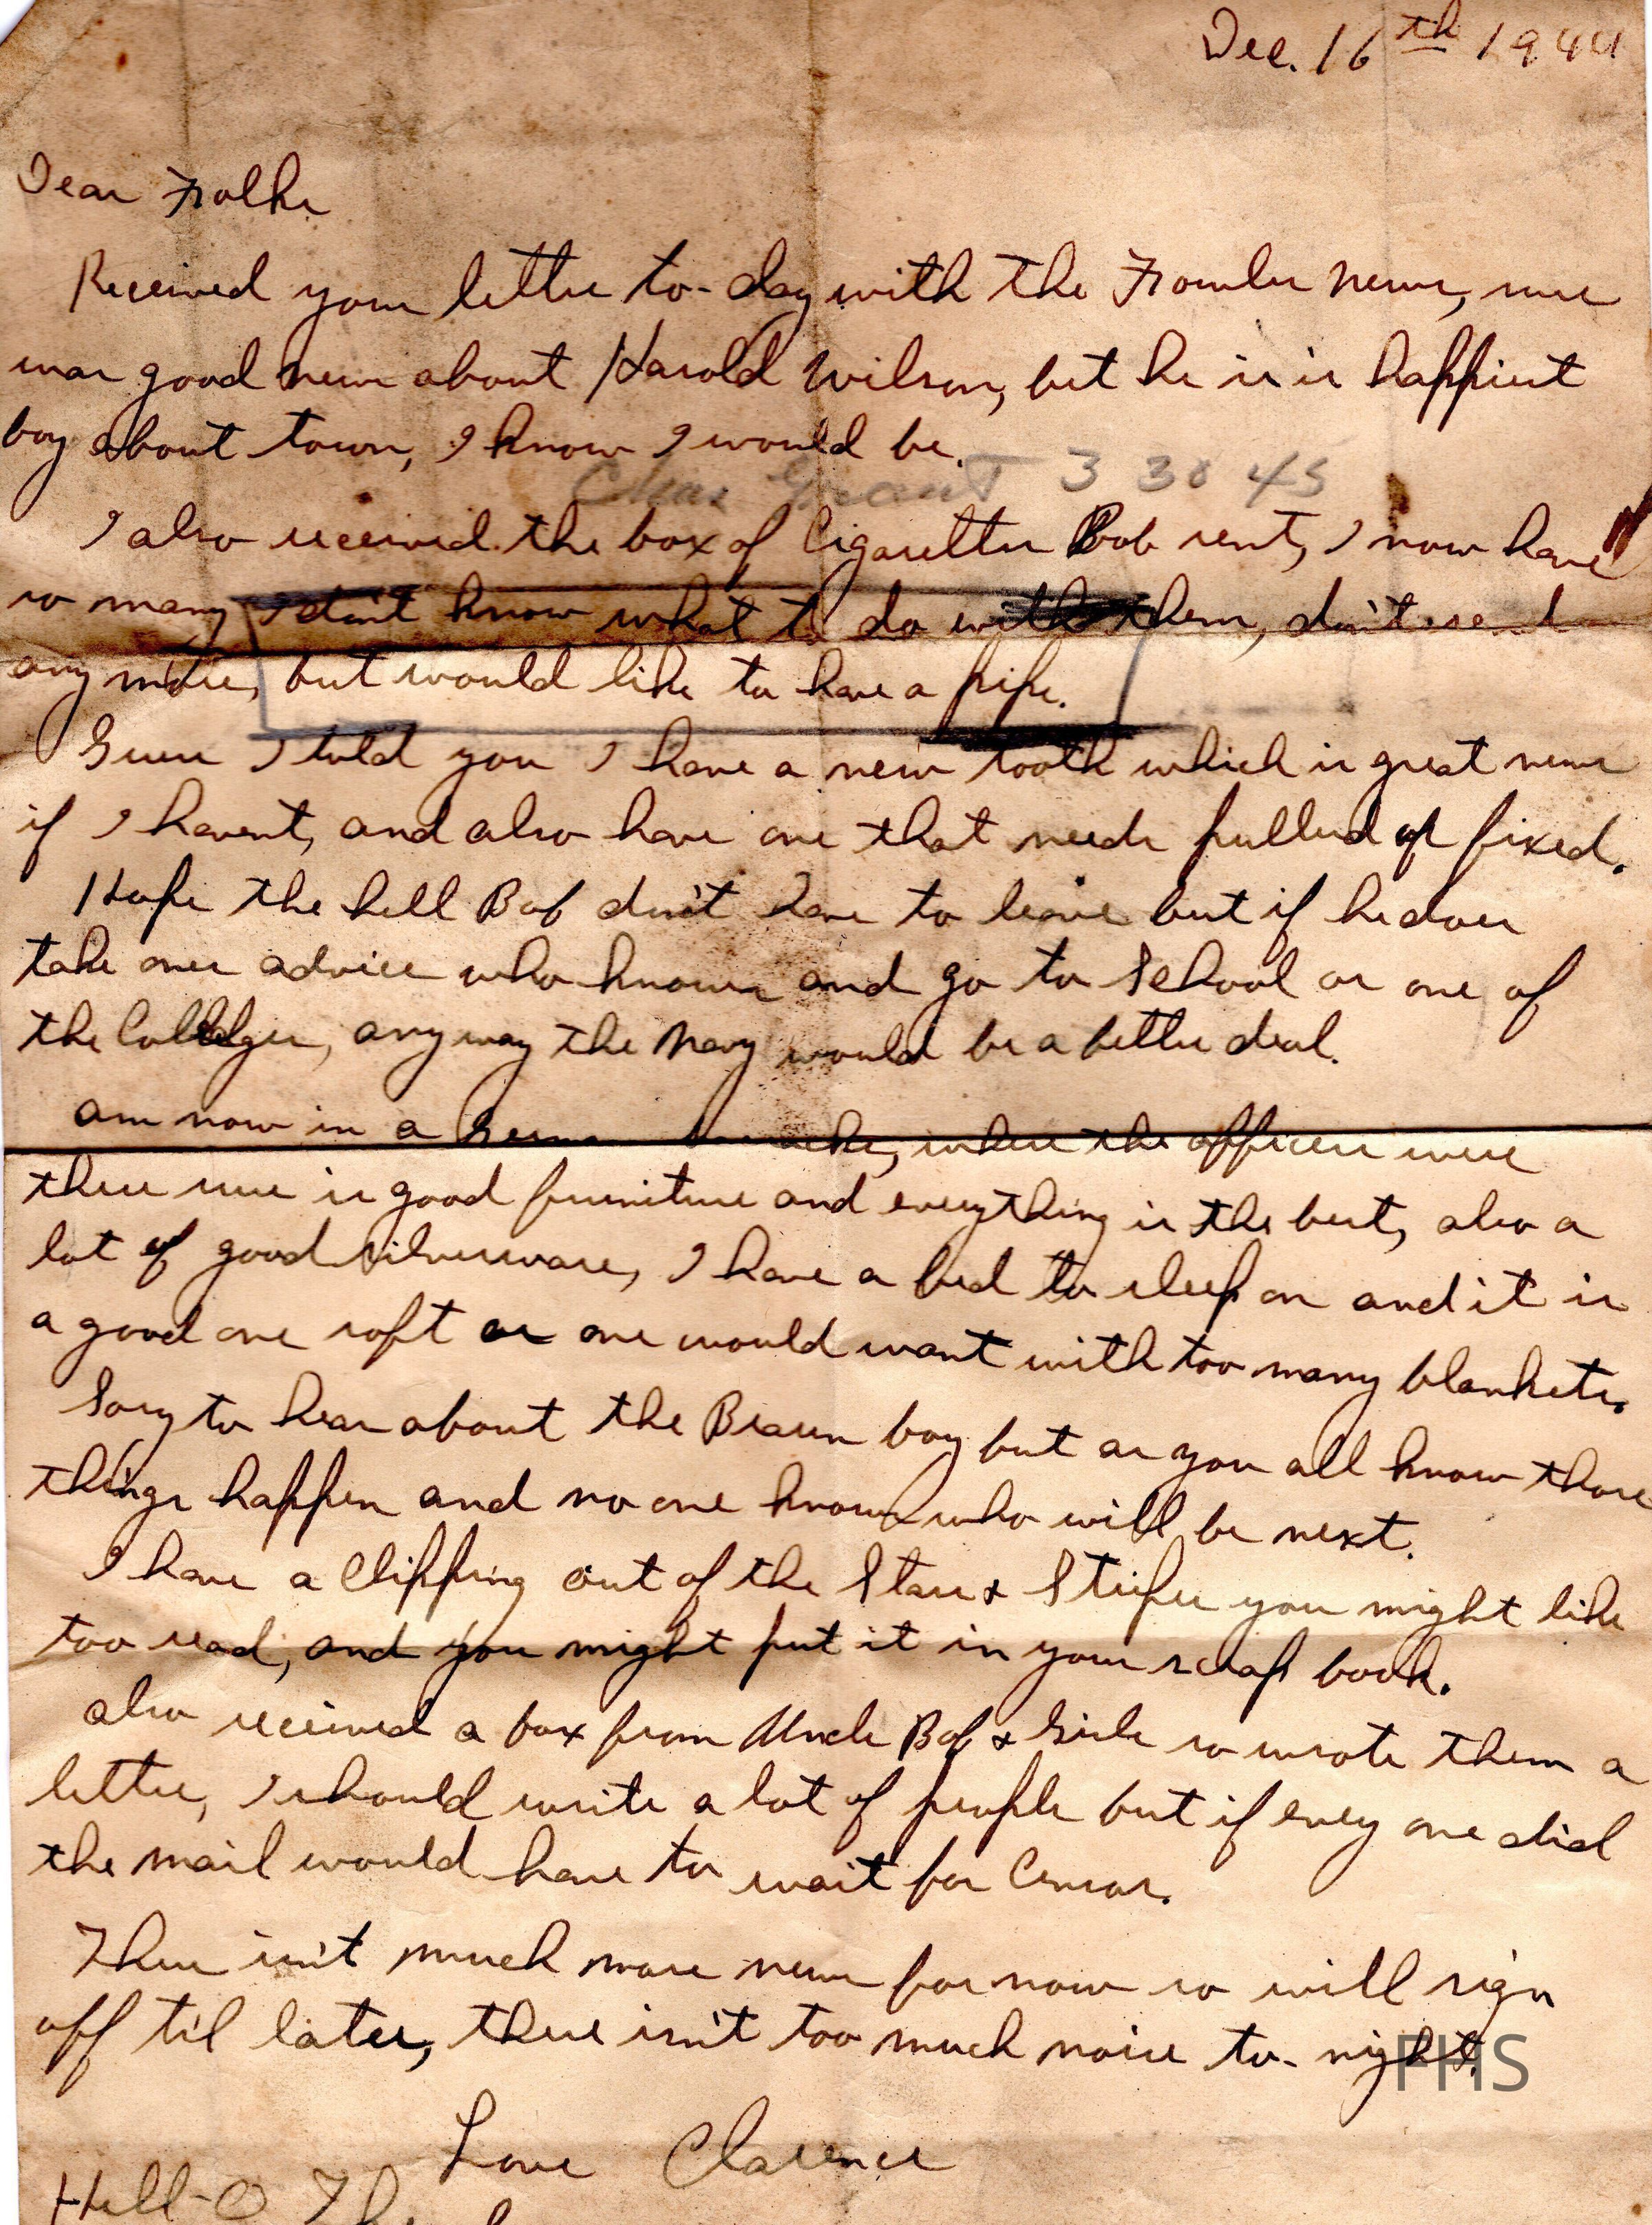 Dec. 16th 1944
Dear Folks
Received your letter to-day with the Fowler news, sure
was good news about Harold Wilson, bet he is is happiest
boy about town, I know I would be.
Chas Grant 3 30 45
I also received the box of Cigarettes Bob sent, I now have
so many I don't know what to do with them, don't send
any more, but would like to have a pipe.
Guess I told you I have a new tooth which is great news
if I havent, and also have one that needs pulled or fixed.
Hope the hell Bob don't have to leave but if he does
take ones advice who knows and go to School or one of
the Colledges, anyway the Navy would be a better deal.
am now in a where the officers were
there sure is good furniture and everything is the best, also a
lot of good silverware, I have a bed to sleep on and it is
a good one soft as one would want with too many blankets.
Sory to hear about the Braun boy but as you all know those
things happen and no one knows who will be next.
I have a Clipping out of the Stars & Stripes you might like
too read, and you might put it in your scrap book.
also received a box from Uncle Bob & Girls so wrote them a
letter, I should write a lot of people but if every one did
the mail would have to wait for Censor.
There isn't much more news for now so will sign
off til later, there isn't too much noise to-night.
FHS
Love Clarence
Hell-O